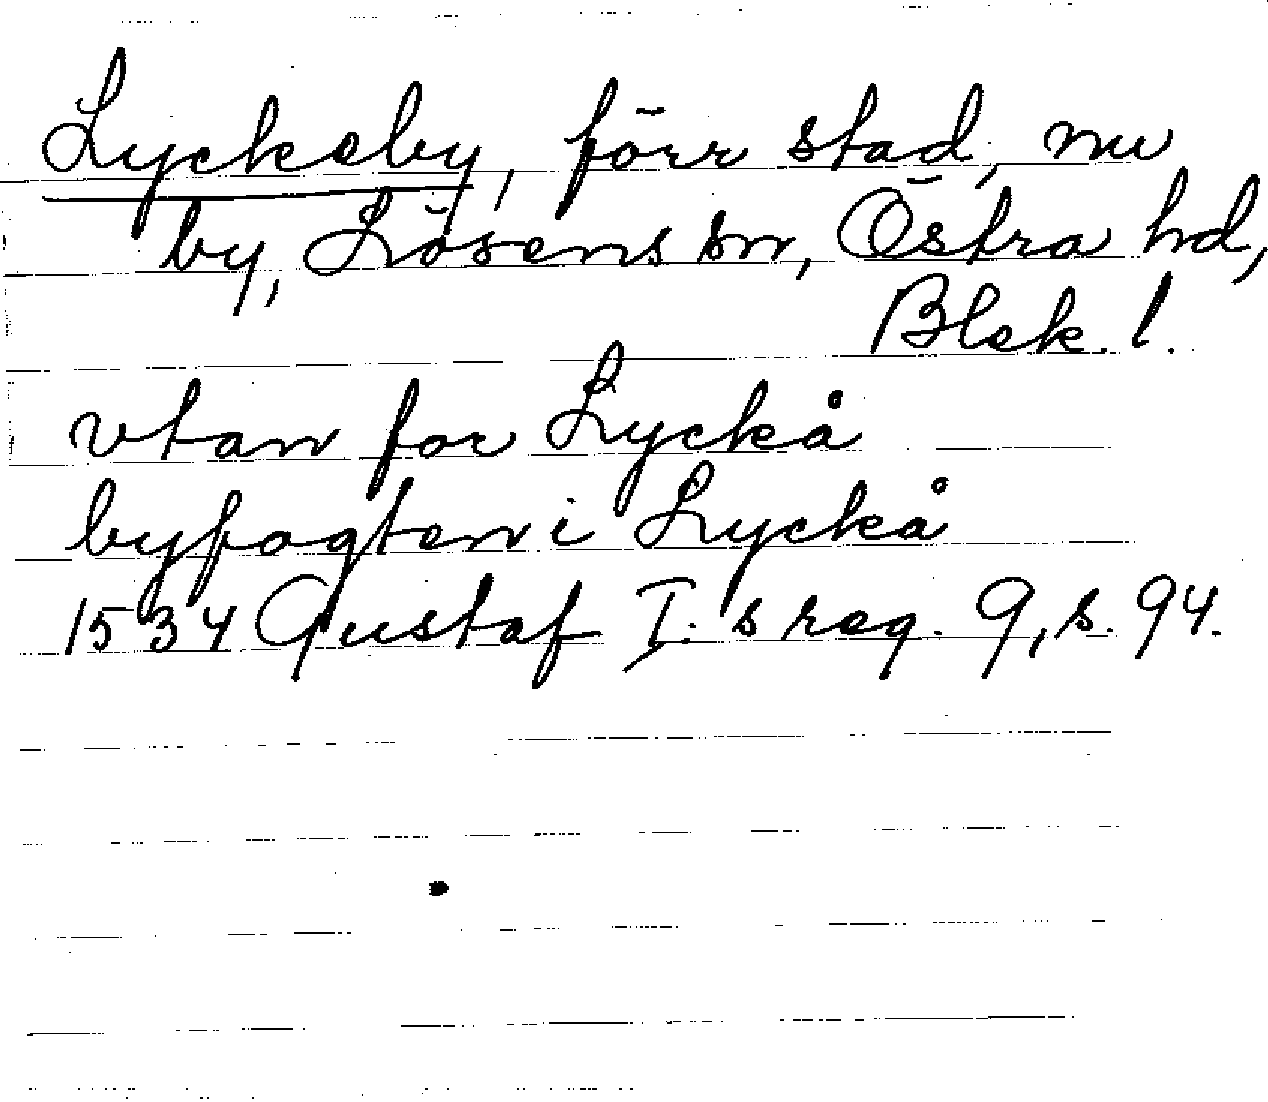 Lyckeby, förr stad, nu
by, Lösens sn, Östra hd,
Blek. l.
vtan for Lyckå
byfogten i Lyckå
1534 Gustaf I:s reg. 9, s. 94.